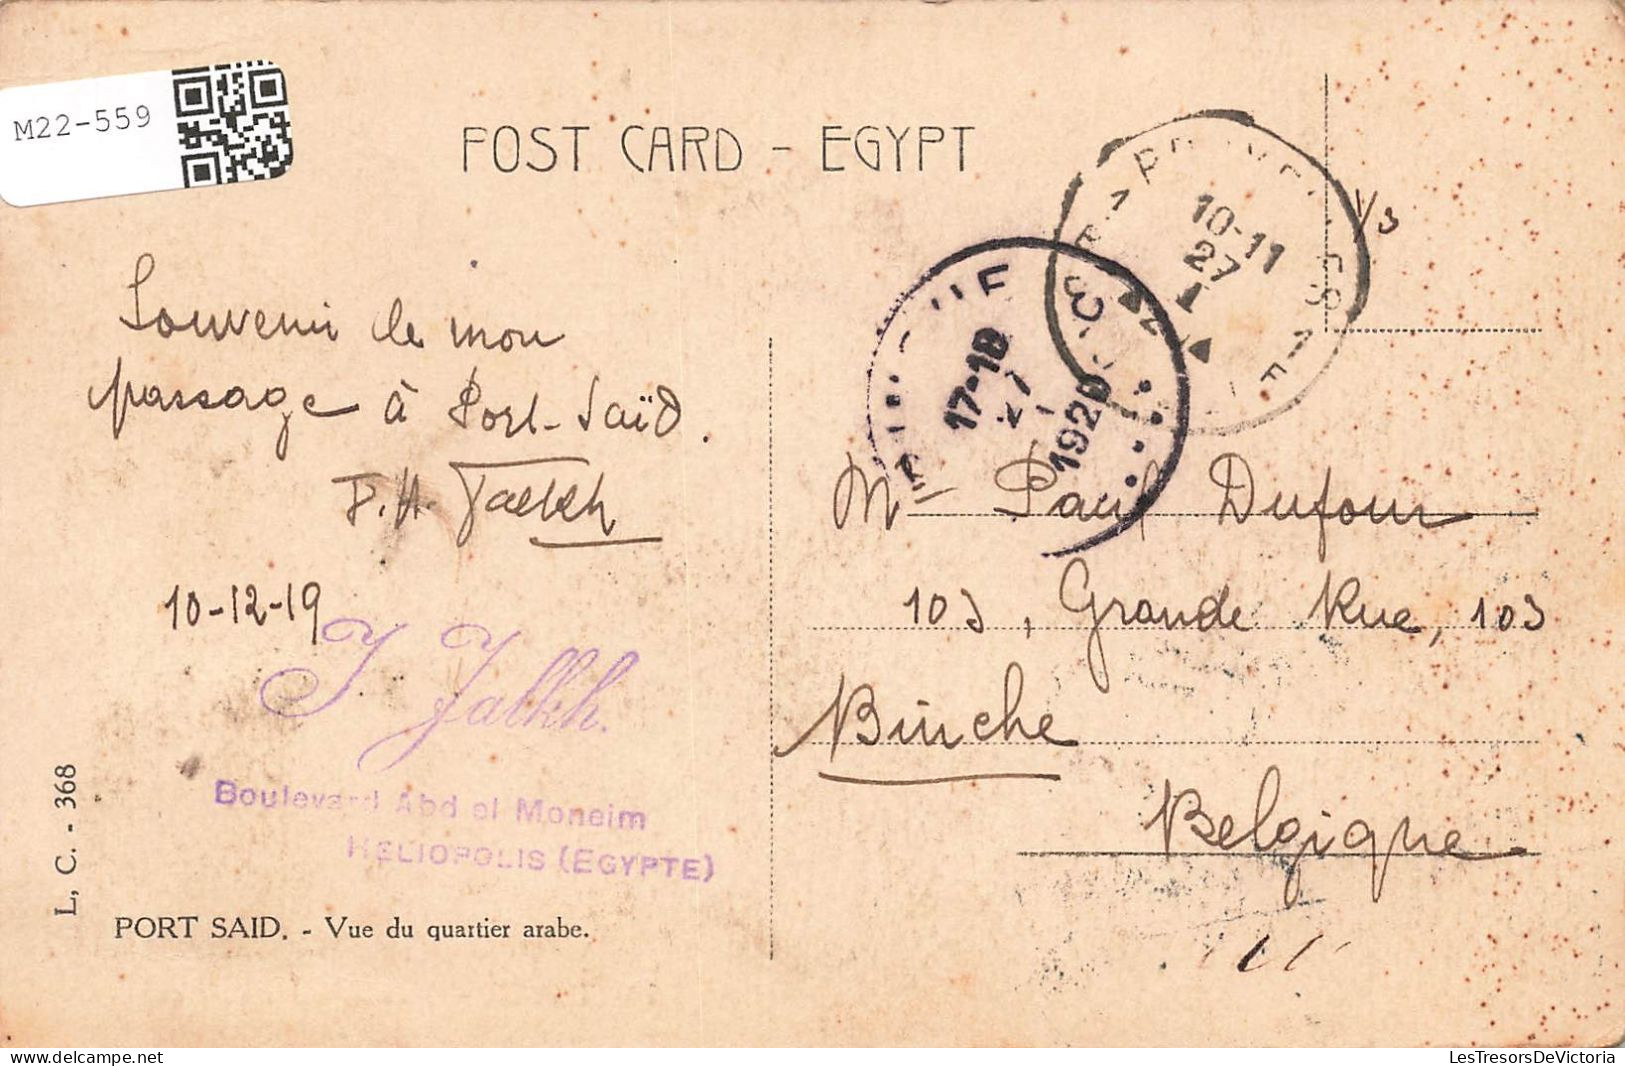 M22-559
POST CARD - EGYPT
10-11
27
1
V3
17-18
27
1
1920
Souvenir de mon
passage à Port-Saïd.
10-12-19
J Jalkh.
Boulevard Abd el Moneim
HELIOPOLIS (EGYPTE)
L. C. - 368
PORT SAID. - Vue du quartier arabe.
Mr Paul Dufour
103, Grande Rue, 103
Binche
Belgique
LesTresorsDeVictoria
www.delcampe.net